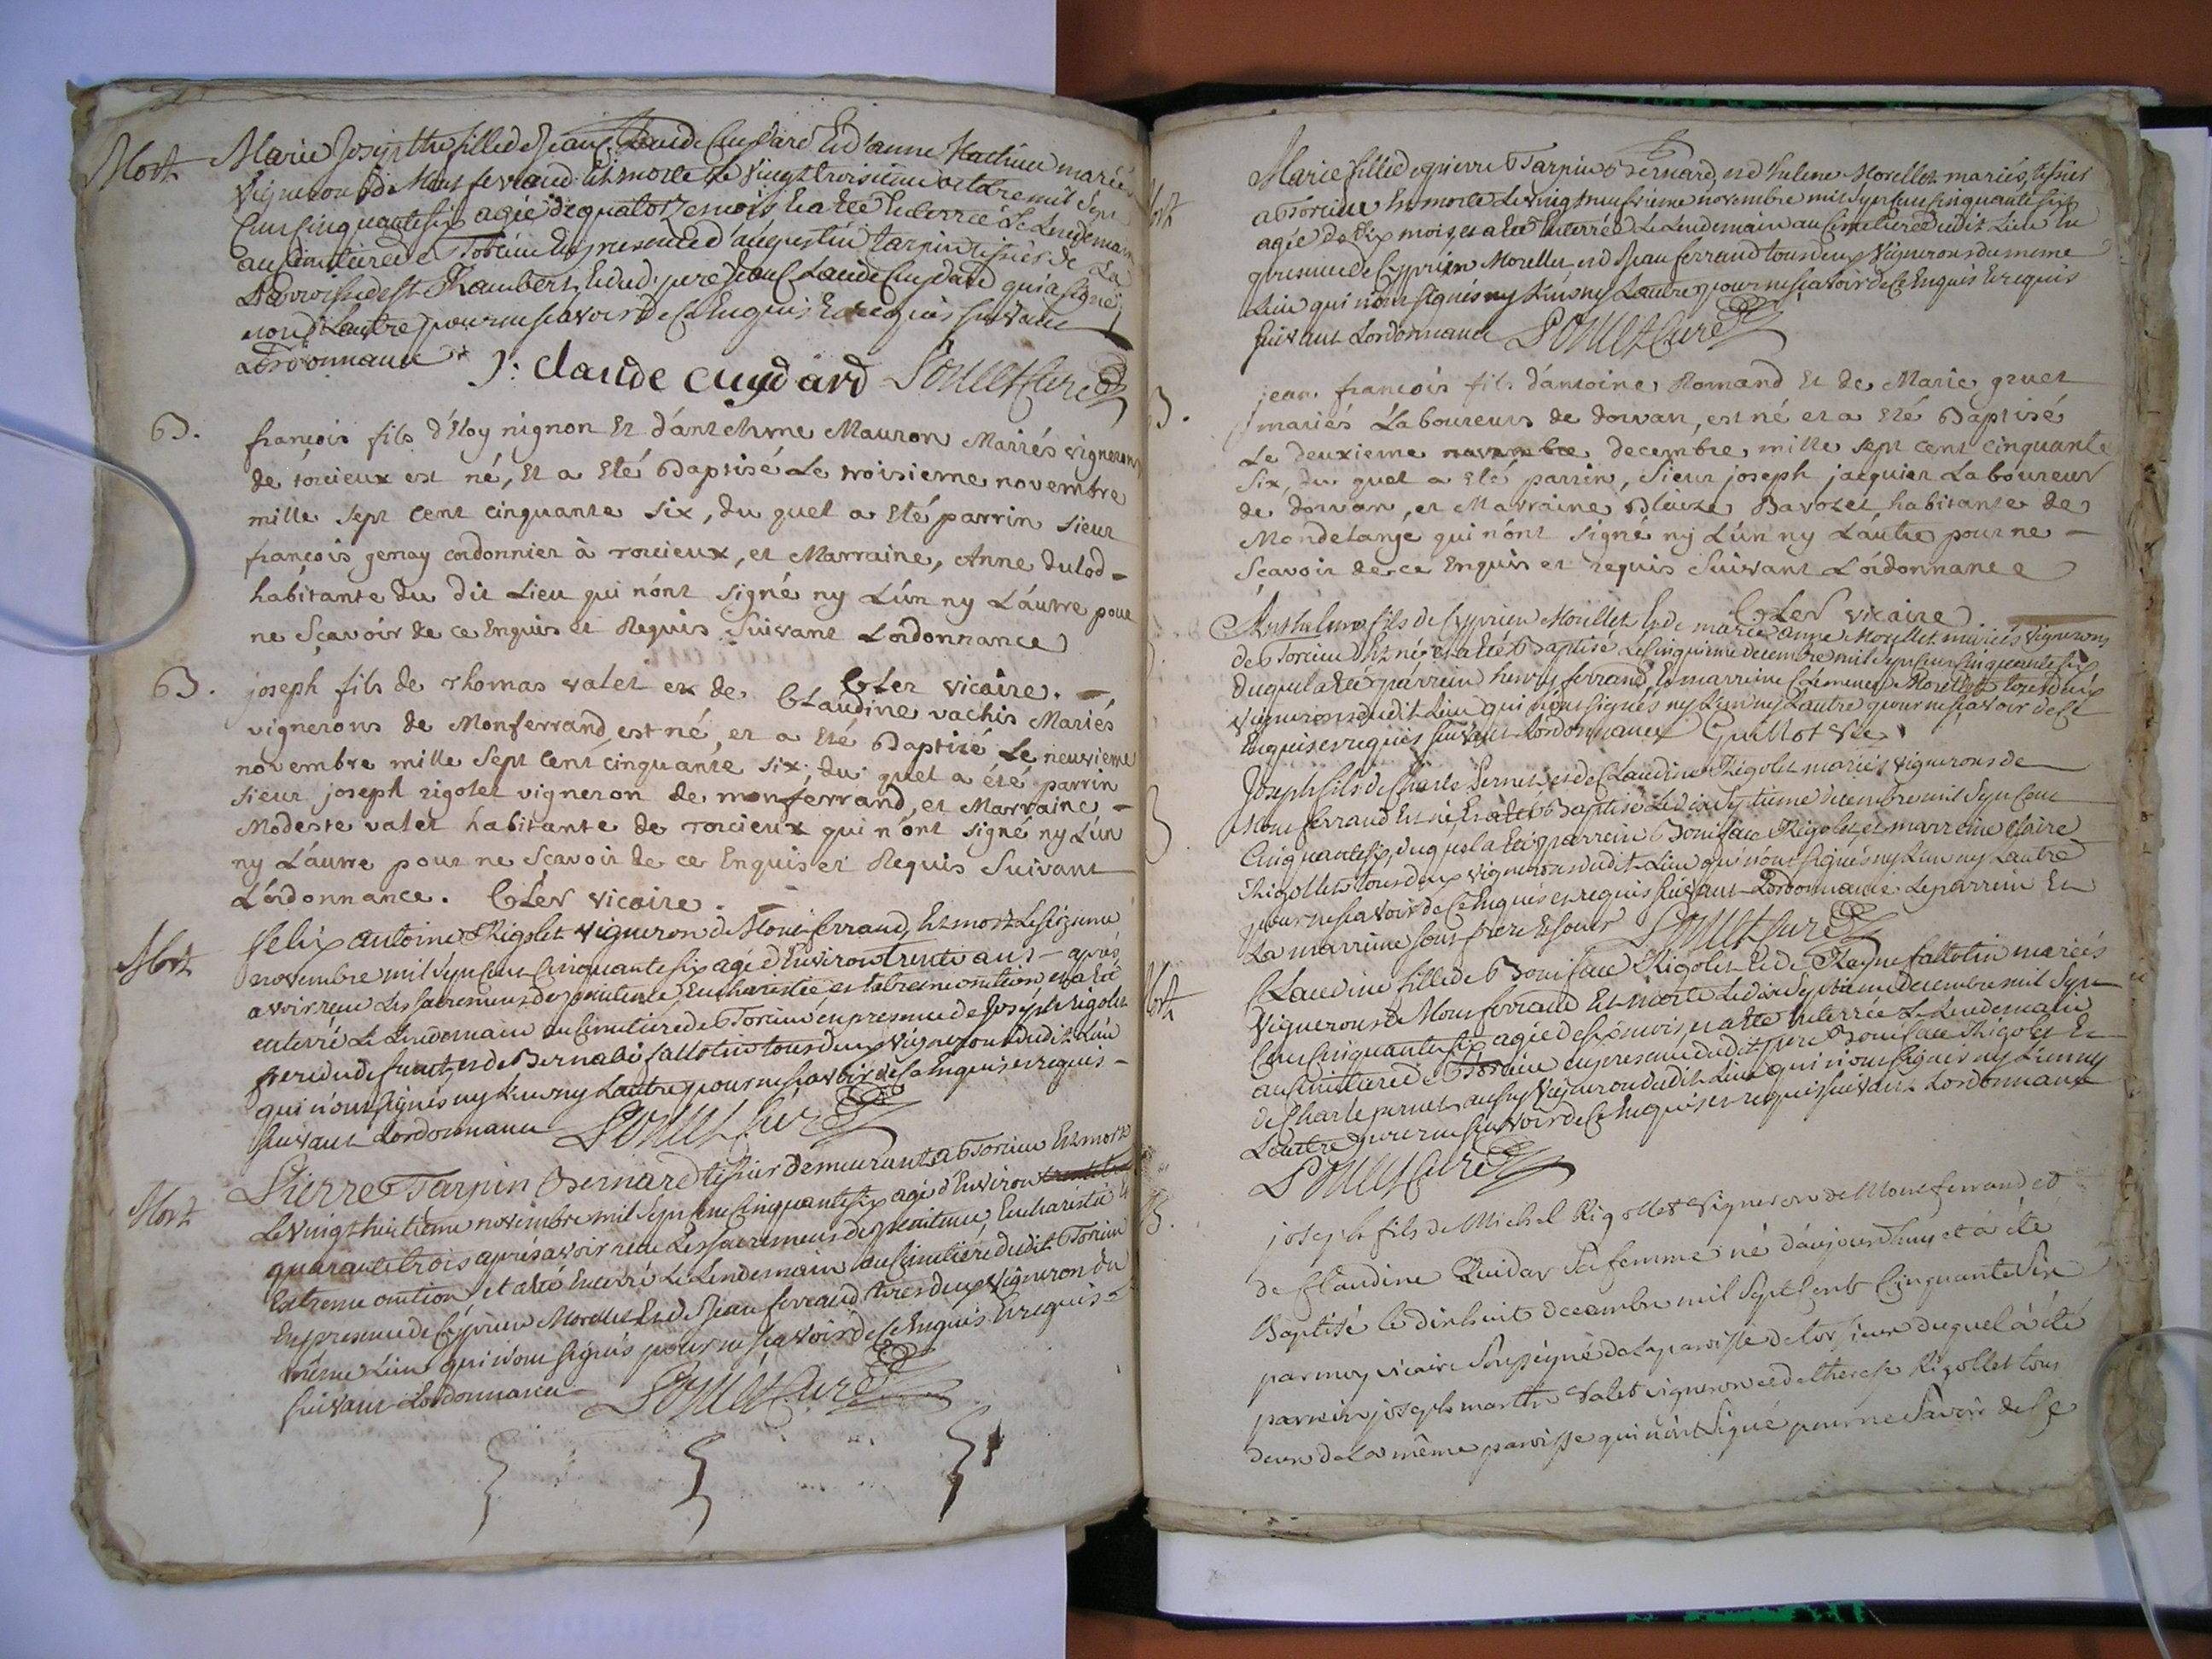 Mort
Marie Josephte fille de Jean Claude Cuydard et d'anne Machieu mariés
vignerons de Montferrand est morte le vingt troisieme octobre mil sept
Cent cinquante six agée de quatorze mois et a eté enterrée Le Lendemain
au Cimetiere de Torcieu en presence d'augustin tarpin tissier de La
Parroisse de st Rambert, et dud. pere Jean Claude Cuydard qui a signé
non L'autre pour ne scavoir de Ce Enquis Et requis suivant
Lordonnance J: claude cuydard Curé
B.
françois fils d'Eloy nignon Et d'antelme Mauron Mariés vignerons
de torcieux est né, Et a Eté Baptisé Le troisieme novembre
mille sept cent cinquante six, du quel a Eté parrin sieur
françois genay cordonnier à torcieux, et Marraine, Anne dulod-
habitante du dit Lieu qui n'ónt signé ny L'ún ny L'áutre pour
ne sçavoir de ce Enquis et Requis Suivant Lórdonnance
vicaire.
B.
joseph fils de thomas valet et de Claudine vachis Mariés
vignerons de Monferrand est né, et a Eté Baptisé Le neuvieme
novembre mille sept Cent cinquante six; du quel a été parrin
sieur joseph rigolet vigneron de monferrand, et Marraine-
Modeste valet habitante de torcieux qui n'ónt signé ny L'un
ny L'áutre pour ne sçavoir de ce Enquis et Requis Suivant
L'órdonnance. vicaire.
Mort
felix antoine Rigolet vigneron de Montferrand, Est mort Le sizieme
novembre mil sept Cent Cinquante six agé d'Environ trente ans - aprés
avoir reçu Les sacremens de penitence, Eucharistie et Extreme onction, et a eté
enterré Le Lendemain au Cimetiere de Torcieu en presence de Joseph Rigolet
frere du defunt, et de Bernabé fallotin tous deux vignerons dudit Lieu
qui n'ont signés ny L'un ny L'autre pour ne scavoir de Ce Enquis et requis -
suivant Lordonnance Curé
Mort
Pierre Tarpin Bernard tissier demeurant a Torcieu Est mort
Le vingt huitieme novembre mil sept Cent Cinquante six agé d'Environ
quarante trois aprés avoir reçu Les sacremens de penitence, Eucharistie Et
Extreme onction, et a eté Enterré Le Lendemain au Cimetiere dudit Torcieu
En presence de Cyprien Morellet Et de Jean ferrand tous deux vigneron du
même Lieu qui n'ont signés pour ne scavoir de Ce Enquis Et requis
suivant Lordonnance Curé
Mort
Marie fille de pierre Tarpin Bernard, et d'helene Morellet mariés, tissiers
a Torcieu Est morte Le vingt neufvieme novembre mil sept Cent Cinquante six
agée de six mois, et a eté Enterrée Le Lendemain au Cimetiere dudit Lieu En
presence de Cyprien Morellet, et de Jean ferrand tous deux vignerons du meme
Lieu qui n'ont signés ny L'un ny L'autre pour ne scavoir de Ce Enquis Et requis
suivant Lordonnance Curé
B.
jean françois fils d'antoine Romand Et de Marie gruet
mariés Laboureurs de dorvan, est né et a Eté Baptisé
Le deuxieme novembre decembre mille sept cent cinquante
six, du quel a Eté parrin, Sieur joseph jacquier Laboureur
de dorvan, et Marraine Bavozet habitante de
Mondétange qui n'ónt signé ny L'ún ny L'áutre pour ne -
Sçavoir de ce Enquis et requis Suivant Lórdonnance
vicaire
Anthelme fils de Cyprien Morellet Et de marie anne Morellet mariés vignerons
de Torcieu Est né et a eté Baptisé Le Cinquieme decembre mil sept Cent Cinquante six
duquel a eté parrein henry ferrand Et marreine Clemence Morellet tous deux
vignerons dudit Lieu qui n'ont signés ny L'un ny L'autre pour ne scavoir de Ce
Enquis et requis suivant Lordonnance Guillot vic
Joseph fils de Charle pernet et de Claudine Rigolet mariés vignerons de
Montferrand Est né Et a eté Baptisé Le dix septieme decembre mil sept Cent
Cinquante six, duquel a eté parrein Boniface Rigolet, et marreine Claire
Rigollet tous deux vignerons dudit Lieu qui n'ont signés ny L'un ny L'autre
pour ne scavoir de Ce Enquis et requis suivant Lordonnance Le parrein Et
La marreine sont frere Et soeur Curé
Mort
Claudine fille de Boniface Rigolet Et de fallotin mariés
vignerons de Montferrand Est morte Le dix septieme decembre mil sept
Cent Cinquante six agée de six mois, et a eté Enterrée Le Lendemain
au Cimetiere de Torcieu en presence dudit pere Boniface Rigolet Et
de Charle pernet aussy vigneron dudit Lieu qui n'ont signés ny L'un ny
L'autre pour ne scavoir de Ce Enquis et requis suivant Lordonnance
Curé
B.
joseph fils de Michel Rigollet vigneron de Montferrand et
de Claudine Quidar sa femme né d'aujourdhuy et á été
Baptisé le dix huit decembre mil sept Cent Cinquante six
par moy vicaire soussigné de La paroisse de torcieux duquel á été
parrein joseph marthe valet vigneron et de therese Rigollet tous
deux de La même paroisse qui n'ont signé pour ne savoir de Ce